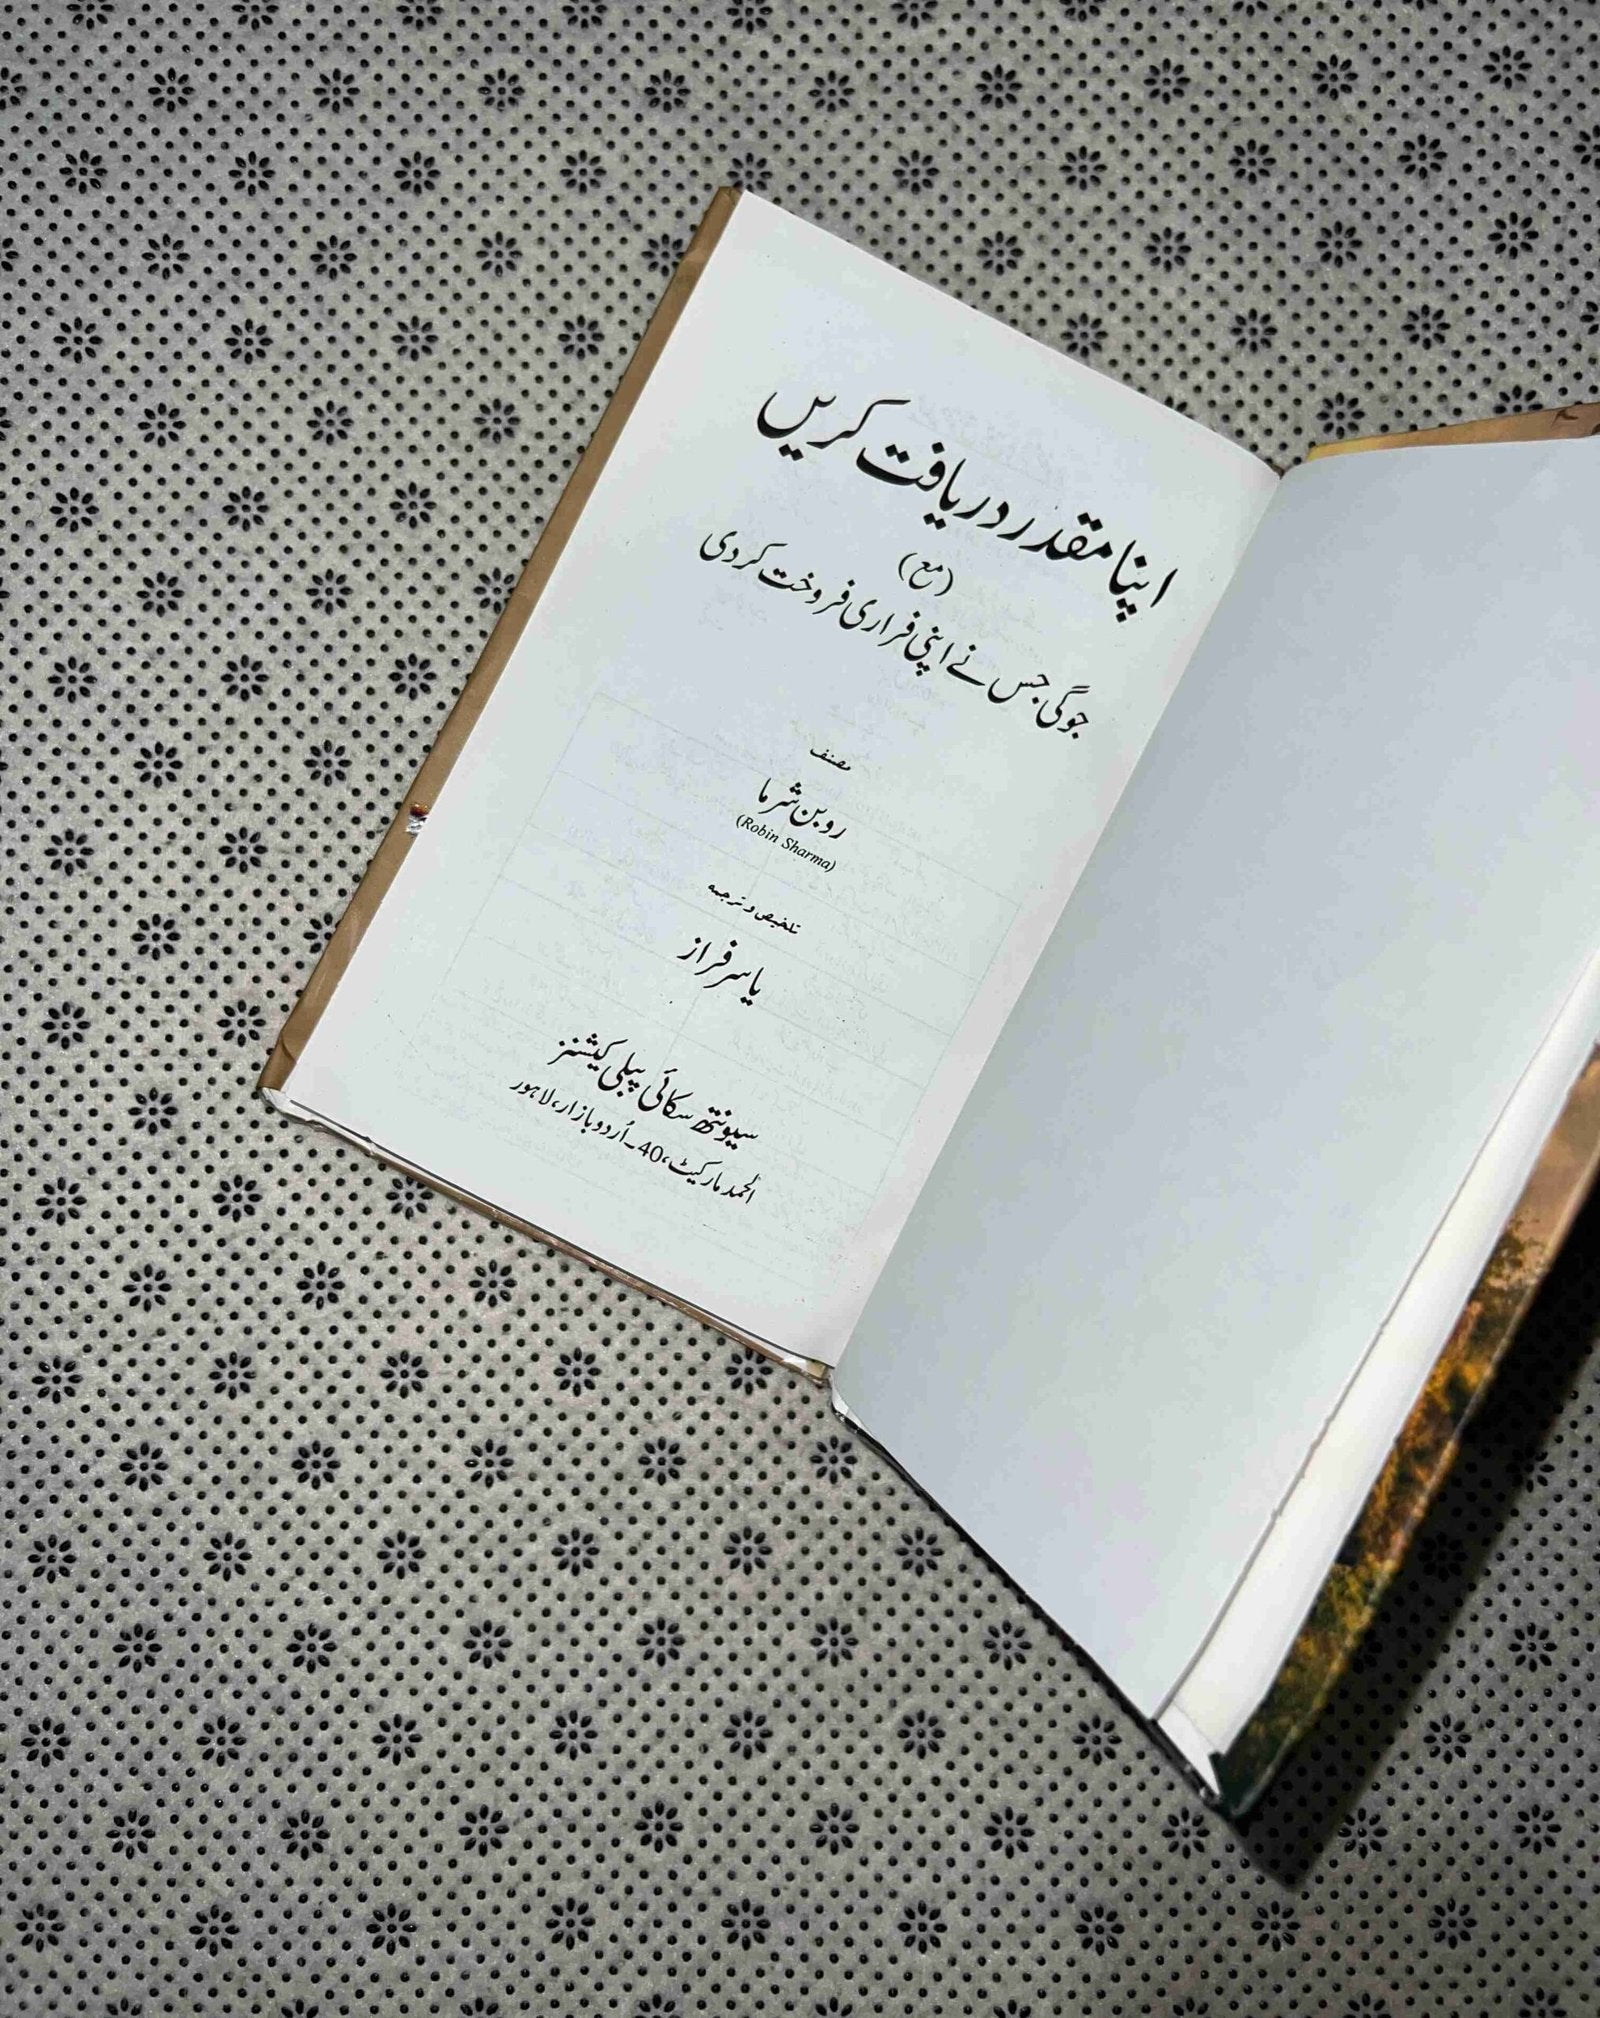 اپنا مقدر دریافت کریں
(مع)
جوگی جس نے اپنی فراری فروخت کر دی
مصنف
روبن شرما
(Robin Sharma)
تلخیص و ترجمہ
یاسر فراز
سیونتھ سکائی پبلی کیشنز
الحمد مارکیٹ، 40۔اُردو بازار، لاہور